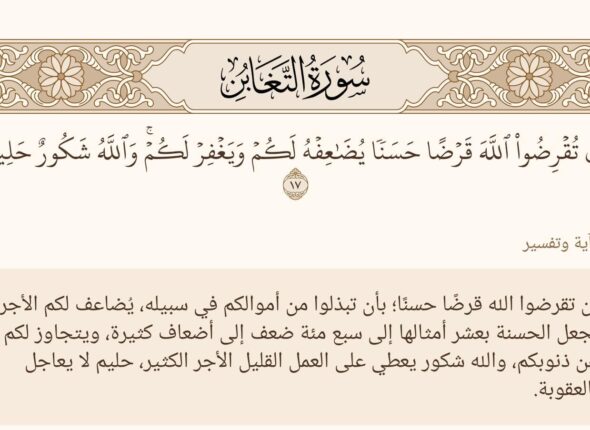 سُورَةُ التَّغَابُنِ
تُقْرِضُوا۟ ٱللَّهَ قَرْضًا حَسَنًا يُضَـٰعِفْهُ لَكُمْ وَيَغْفِرْ لَكُمْ ۚ وَٱللَّهُ شَكُورٌ حَلِي
١٧
آية وتفسير
ن تقرضوا الله قرضًا حسنًا؛ بأن تبذلوا من أموالكم في سبيله، يُضاعف لكم الأجر
جعل الحسنة بعشر أمثالها إلى سبع مئة ضعف إلى أضعاف كثيرة، ويتجاوز لكم
ن ذنوبكم، والله شكور يعطي على العمل القليل الأجر الكثير، حليم لا يعاجل
العقوبة.